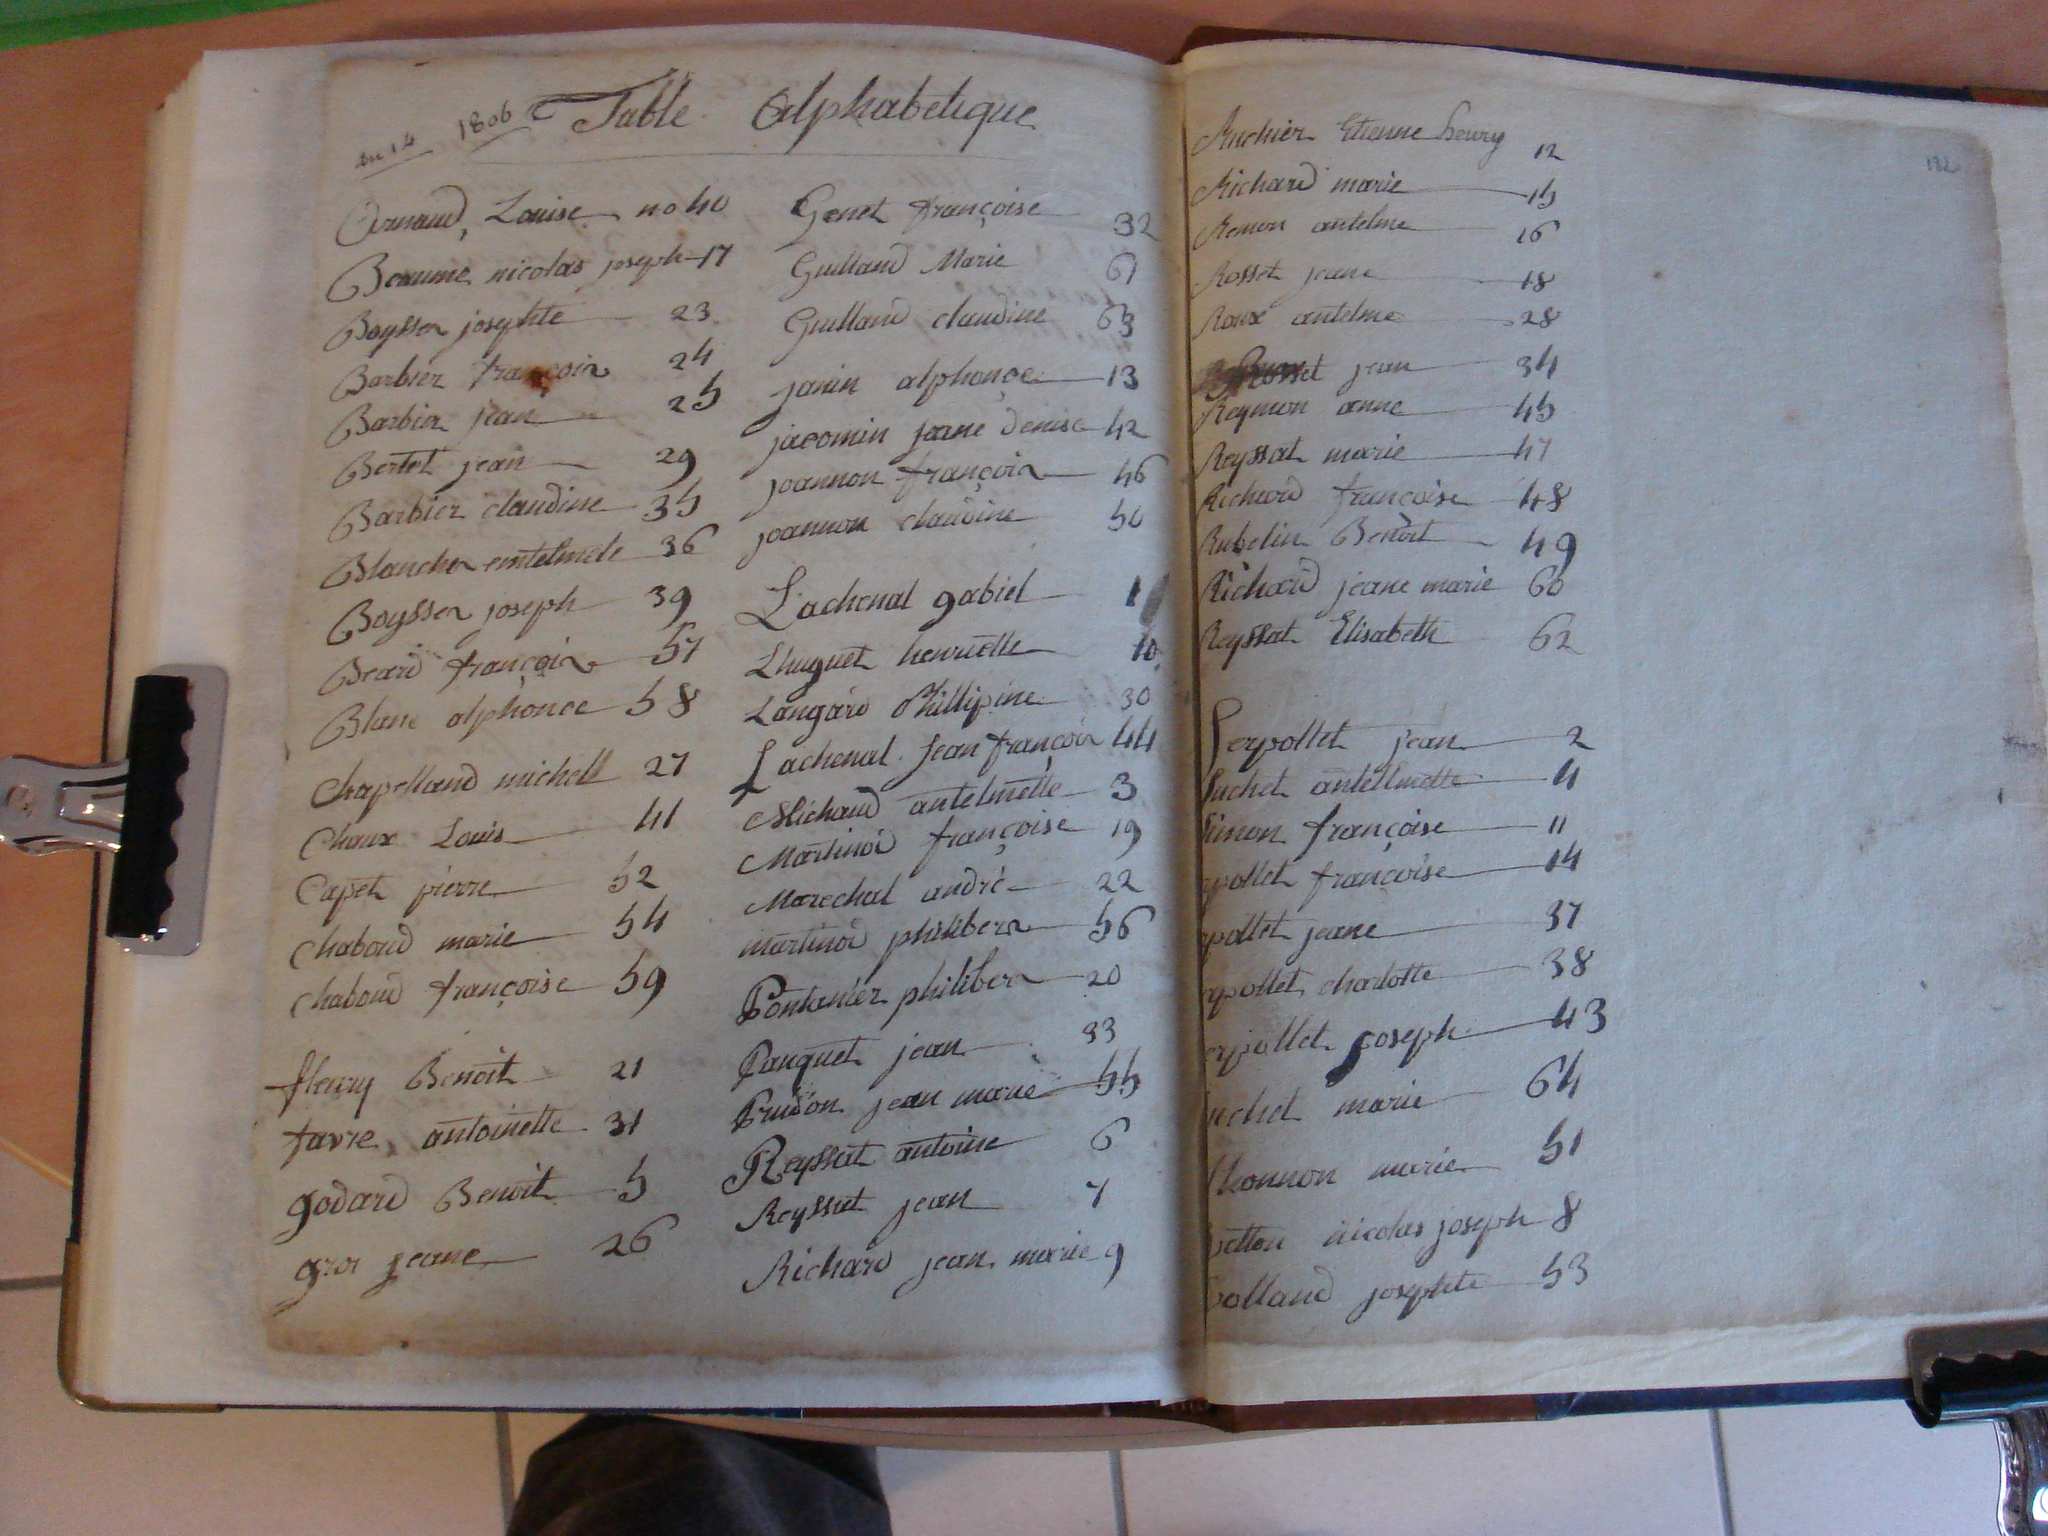 an 14 1806 Table Alphabetique
Arnaud, Louise no 40
Beaume nicolas joseph 17
Boysson josephte 23
Barbier françois 24
Barbier jean 25
Bertet jean 29
Barbier claudine 35
Blancher 36
Boysson joseph 39
Beard françois 57
Blanc alphonce 58
Chapelland michell 27
Chaux Louis 41
Capet pierre 52
chaboud marie 54
chaboud françoise 59
fleury Benoit 21
favre antoinette 31
godard Benoit 5
gros jeane 26
Genet françoise 32
Guilland Marie 61
Guilland claudine 63
janin alphonce 13
jacomin jeane denise 42
joannon françois 46
joannon claudine 50
Lachenal gabiel 1
Lhuguet henriette 10
Langard Phillipine 30
Lachenal jean françois 44
Michaud antelmette 3
Martinod françoise 19
Marechal andré 22
martinod philibert 56
Pontanier philibert 20
Panquet jean 33
Prudon jean marie 55
Reyssat antoine 6
Reyssat jean 7
Richard jean marie 9
Ruchier Etienne henry 12
Richard marie 15
Remon antelme 16
Rosset jeane 18
Roux antelme 28
Rosset jean 34
Reymon anne 45
Reyssat marie 47
Richard françoise 48
Rubelin Benoit 49
Richard jeane marie 60
Reyssat Elisabeth 62
Serpollet jean 2
Suchet antellmette 4
Simon françoise 11
rpollet françoise 14
rpollet jeane 37
rpollet charlotte 38
erpollet joseph 43
uchet marie 64
Thonnon marie 51
nicolas joseph 8
olland josephte 53